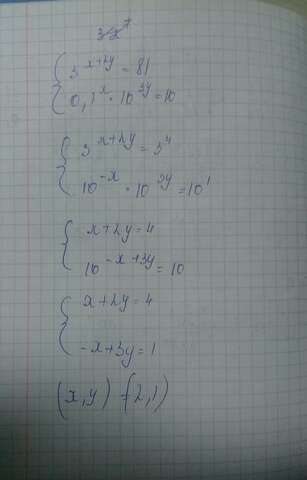 3^{x+2y} = 81
0,1^x · 10^{3y} = 10
3^{x+2y} = 3^4
10^{-x} · 10^{3y} = 10^1
x+2y = 4
10^{-x+3y} = 10
x+2y = 4
-x+3y = 1
(x,y) = (2,1)